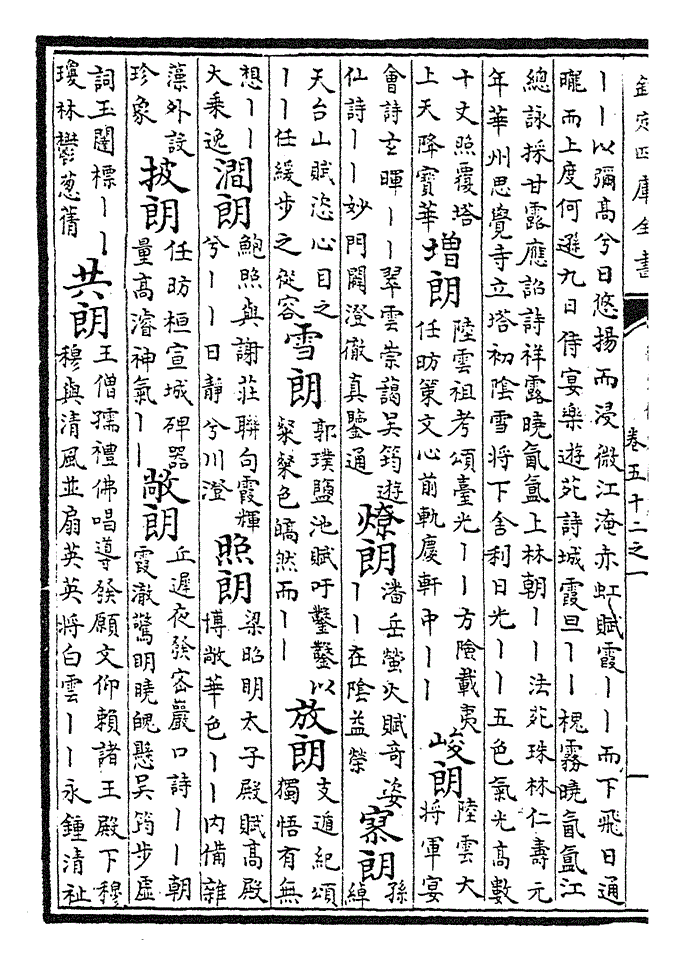 欽定四庫全書
卷五十二之一
丨丨以彌髙兮日悠揚而浸微江淹赤虹賦霞丨丨而下飛日通
曨而上度何遜九日侍宴樂遊苑詩城霞旦丨丨槐霧曉氤氲江
總詠採甘露應詔詩祥露曉氤氲上林朝丨丨法苑珠林仁壽元
年華州思覺寺立塔初陰雪將下舍利日光丨丨五色氣光髙數
十丈照覆塔
上天降寶華
増朗
陸雲祖考頌臺光丨丨方險載夷
任昉策文心前軌慶軒中丨丨
峻朗
陸雲大
將軍宴
會詩玄暉丨丨翠雲崇藹吳筠遊
仙詩丨丨妙門闢澄徹真鑒通
燎朗
潘岳螢火賦竒姿
丨丨在陰益榮
寥朗
孫
綽
天台山賦恣心目之
丨丨任緩步之從容
雪朗
郭璞鹽池賦吁鑿鑿以
粲粲色皜然而丨丨
放朗
支遁紀頌
獨悟有無
想丨丨
大乘逸
澗朗
鮑照與謝莊聯句霞輝
兮丨丨日靜兮川澄
照朗
梁昭明太子殿賦髙殿
博敞華色丨丨内備雜
藻外設
珍象
披朗
任昉桓宣城碑器
量髙濬神氣丨丨
敞朗
丘遲夜發密巖口詩丨丨朝
霞澈驚明曉魄懸吳筠步虛
詞玉闥標丨丨
瓊林鬱葱蒨
共朗
王僧孺禮佛唱導發願文仰賴諸王殿下穆
穆與清風並扇英英將白雲丨丨永鍾清祉